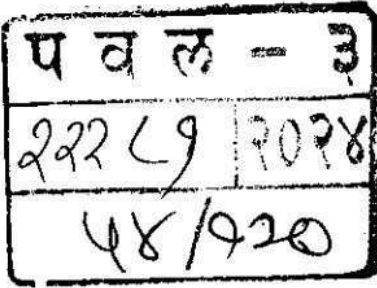 प व ल - ३
२२२८१ २०२४
५४/१२०